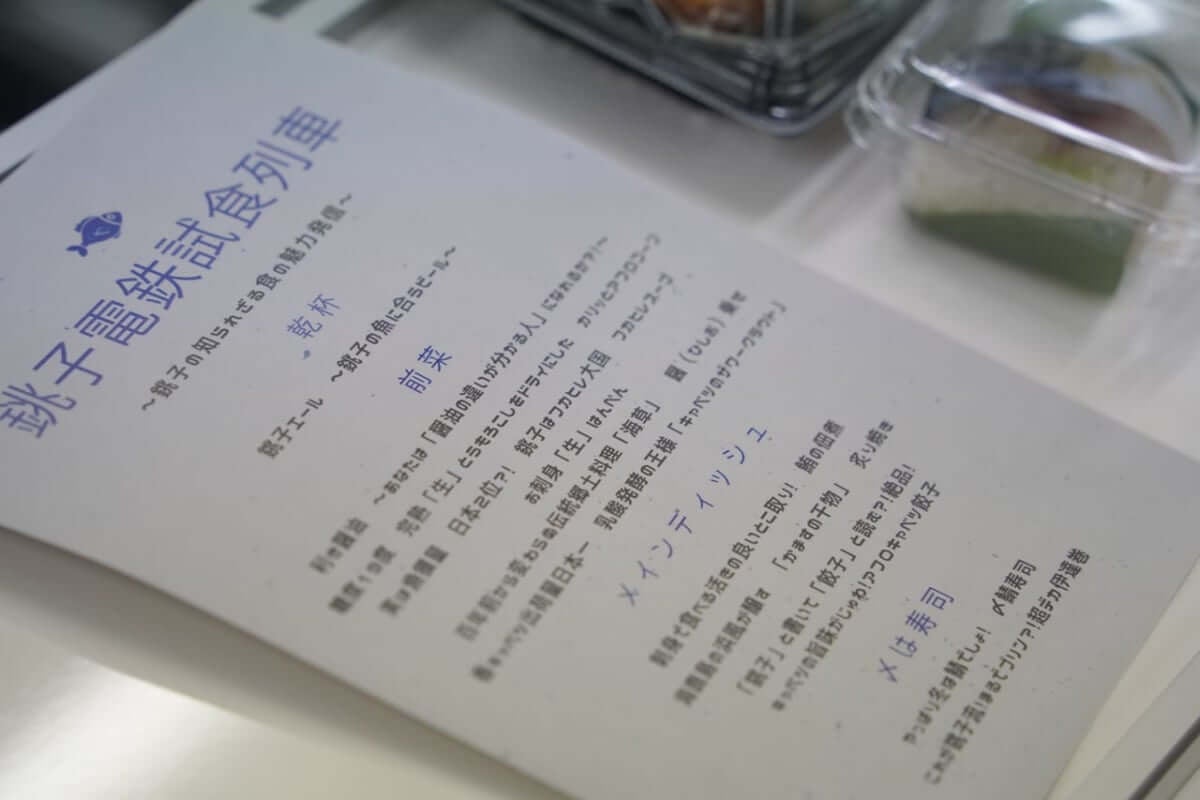 銚子電鉄試食列車
～銚子の知られざる食の魅力発信～
乾杯
銚子エール　～銚子の魚に合うビール～
前菜
利き醤油　～あなたは「醤油の違いが分かる人」になれるか?!～
糖度19度　完熟「生」とうもろこしをドライにした　カリッとアフロコーン
実は漁獲量　日本2位?!　銚子はフカヒレ大国　フカヒレスープ
お刺身「生」はんぺん
百年前から変わらの伝統郷土料理「海草」　醤（ひしお）乗せ
春キャベツ出荷量日本一　乳酸発酵の王様「キャベツのザワークラウト」
メインディッシュ
刺身で食べる活きの良いとこ取り!　鮪の佃煮
浜風が醸す　「かますの干物」　炙り焼き
「銚子」と書いて「餃子」と読む?!絶品!
キャベツの旨味がじゅわ!アフロキャベツ餃子
〆は寿司
やっぱり冬は鯖でしょ!　〆鯖寿司
これが銚子流!まるでプリン?!超デカ伊達巻